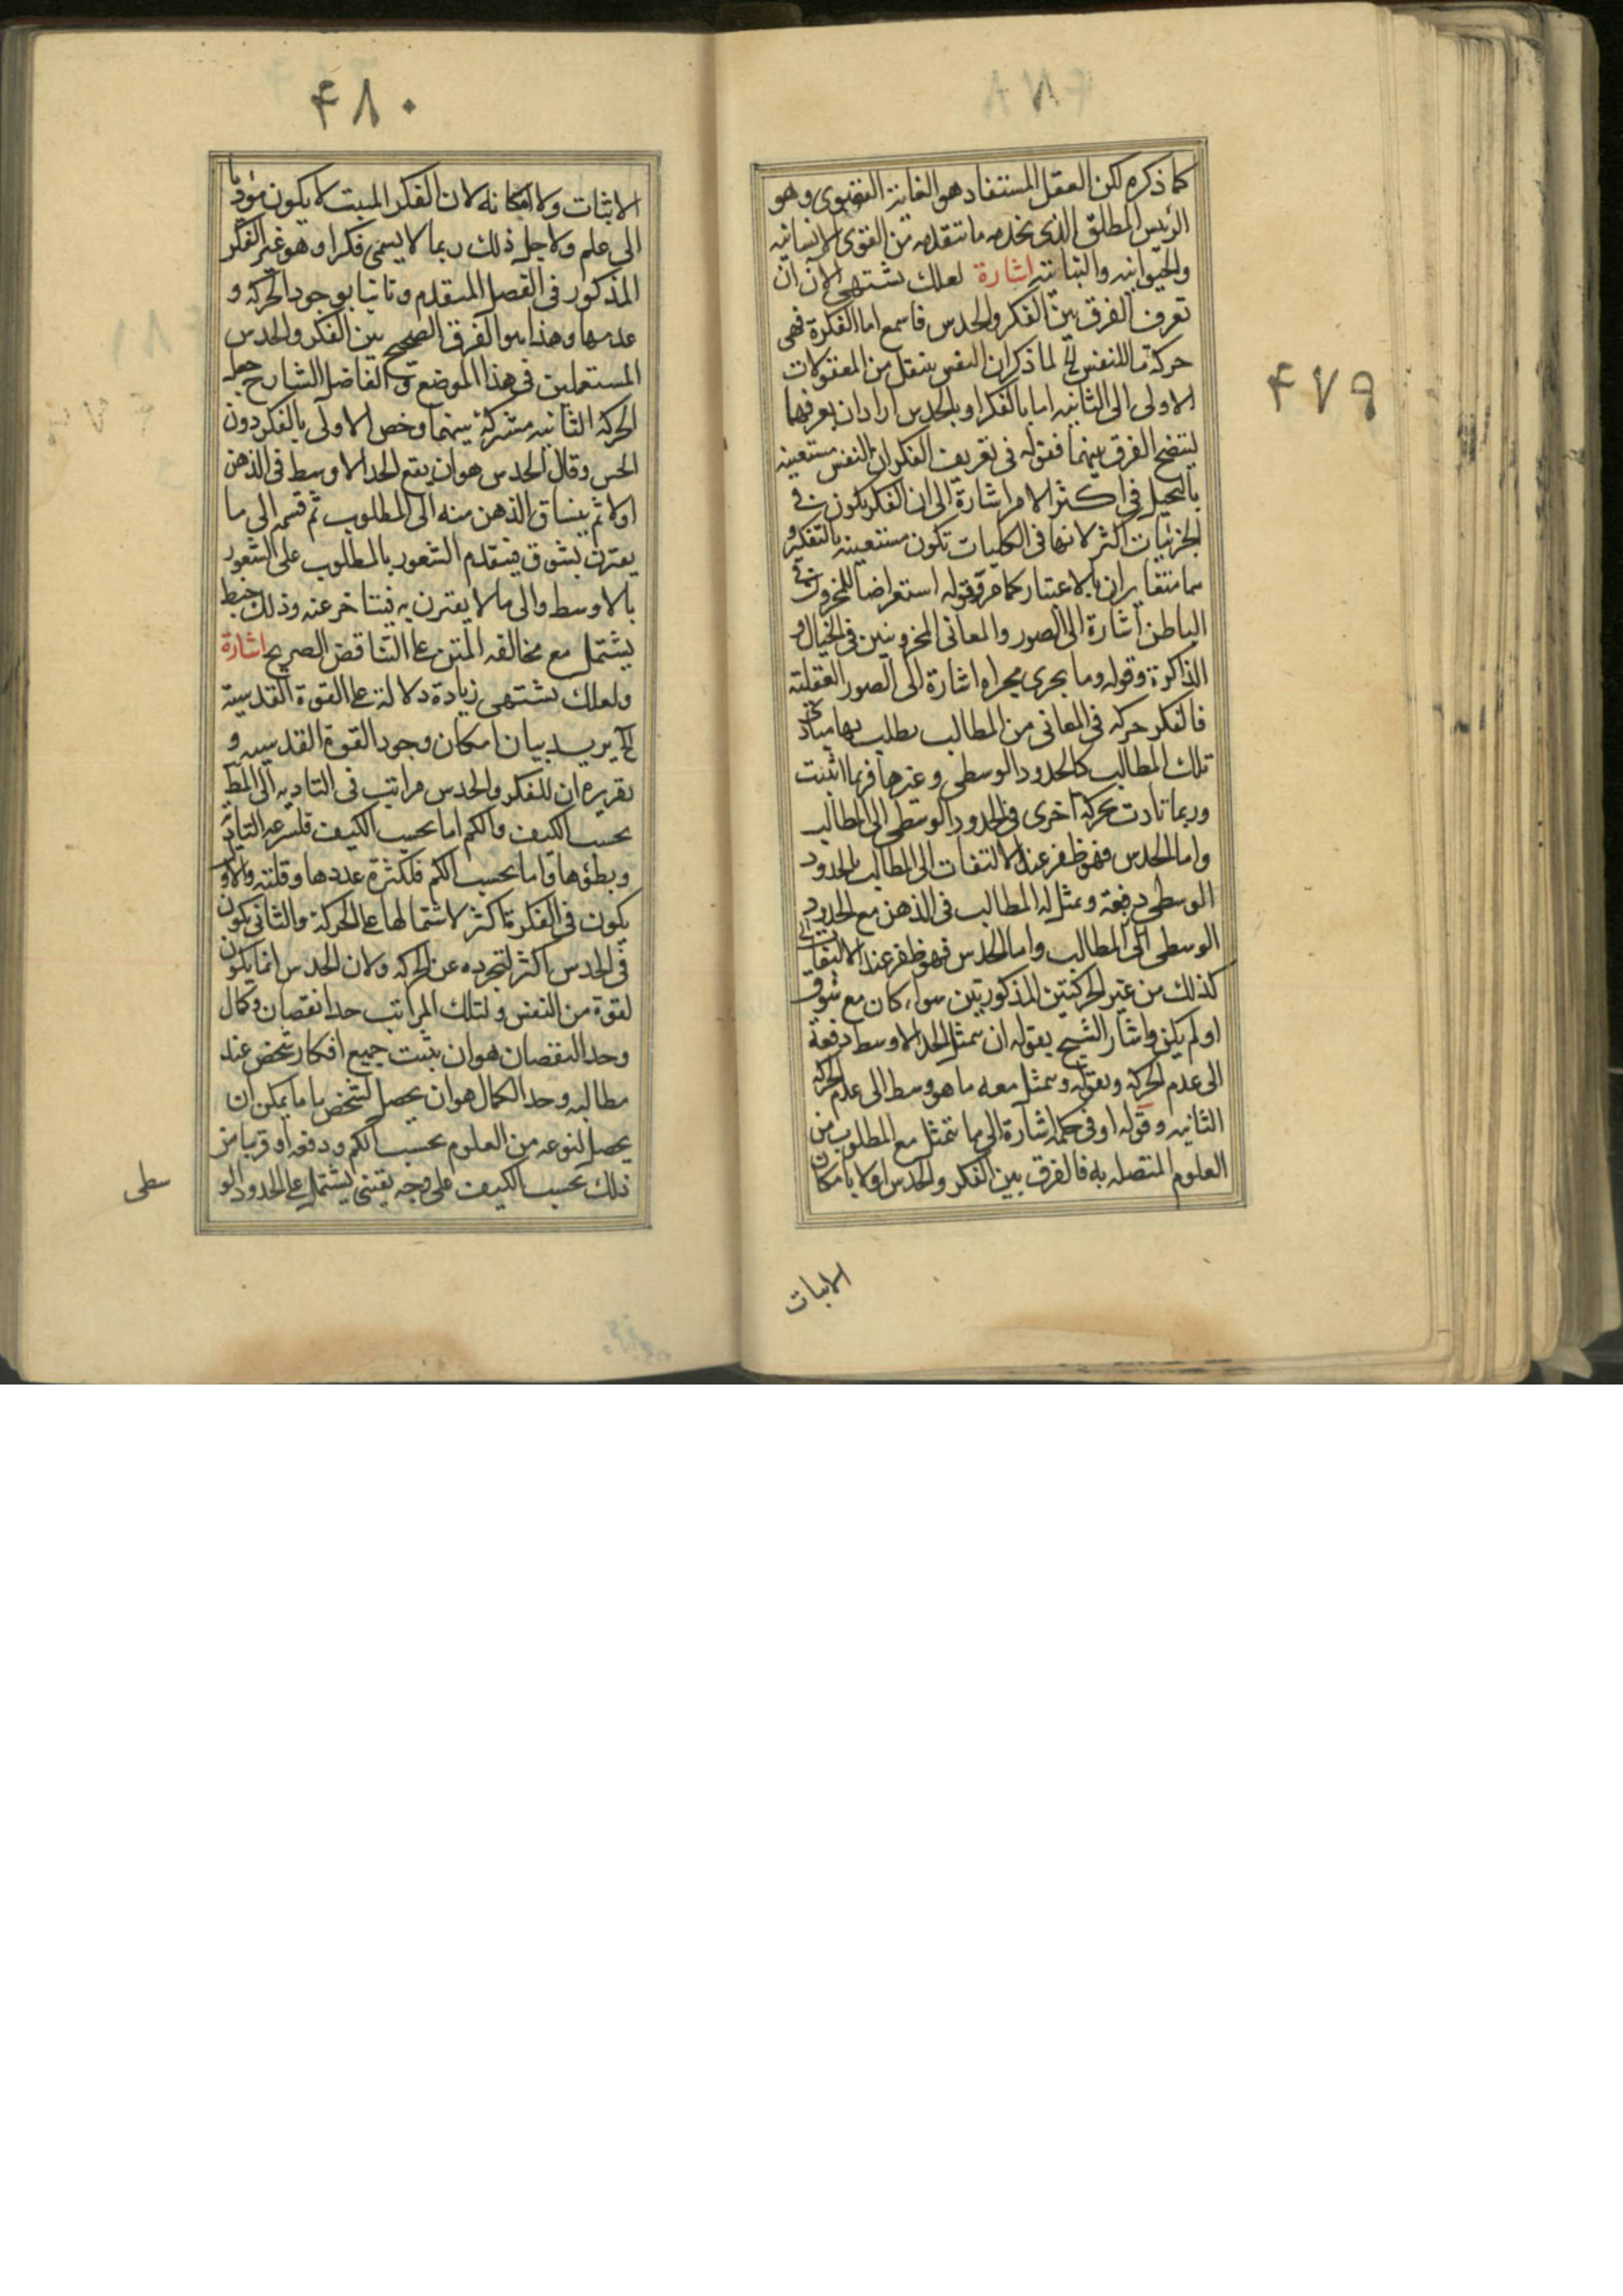 ۴۷۹
كما ذكره لكن العقل المستفاد هو الغاية القصوى وهو
الرئيس المطلق الذى يخدمه ما تتقدمه من القوى الانسانيه
والحيوانيه والنباتيه اشارة لعلك تشتهى الان ان
تعرف الفرق بين الفكر والحدس فاسمع اما الفكرة فهى
حركة ما للنفس الخ لما ذكر ان النفس ينتقل من المعقولات
الاولى الى الثانيه اما بالفكر او بالحدس اراد ان يعرفها
ليتضح الفرق بينهما فقوله فى تعريف الفكر ان النفس مستعينه
بالتخيل فى اكثر الامر اشارة الى ان الفكر يكون فى
الجزئيات اكثر لانها فى الكليات تكون مستعينه بالتفكر و
هما متغايران بالاعتبار كما مر وقوله استعراضا للمخزون فى
الباطن اشارة الى الصور والمعانى المخزونين فى الخيال و
الذاكرة وقوله وما يجرى مجراه اشارة الى الصور العقلية
فالفكر حركه فى المعانى من المطالب يطلب بها مبادى
تلك المطالب كالحدود الوسطى وغيرها فربما انبتت
وربما تادت بحركة اخرى فى الحدود الوسطى الى المطالب
واما الحدس فهو ظفر عند الالتفات الى المطالب بالحدود
الوسطى دفعة وتمثل له المطالب فى الذهن مع الحدود
الوسطى الى المطالب واما الحدس فهو ظفر عند الالتفات الى
كذلك من غير الحركتين المذكورتين سواء كان مع شوق
او لم يكن واشار الشيخ بقوله ان يتمثل الحد الاوسط دفعة
الى عدم الحركه وبقوله ويتمثل معه ما هو وسط الى عدم الحركه
الثانيه وقوله او فى حكمه اشارة الى ما يتمثل مع المطلوب من
العلوم المتصله به فالفرق بين الفكر والحدس اولا بامكان
الانبات
۴۸۰
الانبتات ولا امكانه لان الفكر المنبت لا يكون مؤديا
الى علم ولاجل ذلك ربما لا يسمى فكرا وهو غير الفكر
المذكور فى الفصل المتقدم وثانيا بوجود الحركه و
عدمها وهذا هو الفرق الصحيح بين الفكر والحدس
المستعملين فى هذا الموضع والفاضل الشارح جعل
الحركه الثانيه مشتركة بينهما وخص الاولى بالفكر دون
الحس وقال الحدس هو ان يقع الحد الاوسط فى الذهن
اولا ثم ينساق الذهن منه الى المطلوب ثم قسمه الى ما
يقترن بشوق فيتقدم الشعور بالمطلوب على الشعور
بالاوسط والى ما لا يقترن به فيتاخر عنه وذلك خبط
يشتمل مع مخالفه المتن على التناقض الصريح اشارة
ولعلك تشتهى زيادة دلالة على القوة القدسية
الخ يريد بيان امكان وجود القوة القدسيه و
تقريره ان للفكر والحدس مراتب فى التاديه الى المط
بحسب الكيف والكم اما بحسب الكيف فلسرعه التاديه
وبطؤها واما بحسب الكم فلكثرة عددها وقلته والاول
يكون فى الفكر اكثر لاشتمالها على الحركة والثانى يكون
فى الحدس اكثر لتجرده عن الحركه ولان الحدس انما يكون
لقوة من النفس ولتلك المراتب حدا نقصان وكمال
وحد النقصان هو ان ينبت جميع افكار شخص عند
مطالبه وحد الكمال هو ان يحصل لشخص ما ما يمكن ان
يحصل لنوعه من العلوم بحسب الكم ودفعه او قريبا من
ذلك بحسب الكيف على وجه يقينى يشتمل على الحدود الو
سطى